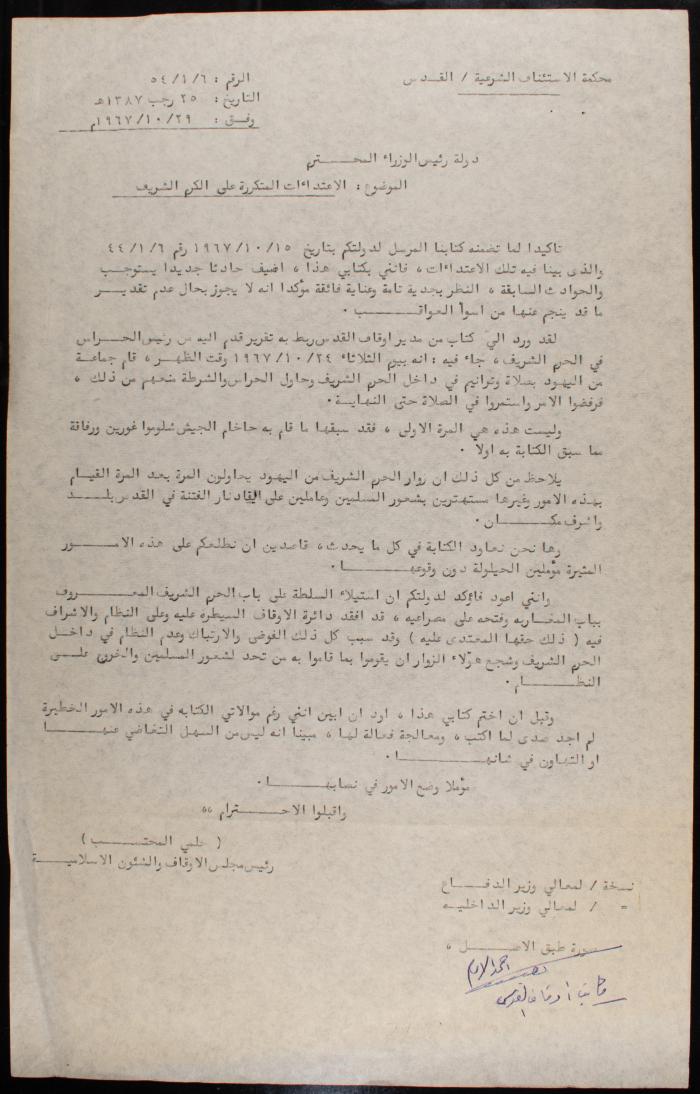 محكمة الاستئناف الشرعية / القدس
الرقم : ٥٤/١/٦
التاريخ : ٢٥ رجب ١٣٨٧هـ
وفق : ١٩٦٧/١٠/٢٩م
دولة رئيس الوزراء المحترم
الموضوع : الاعتداءات المتكررة على الحرم الشريف
تأكيدا لما تضمنه كتابنا المرسل لدولتكم بتاريخ ١٩٦٧/١٠/١٥ رقم ٤٤/١/٦
والذى بينا فيه تلك الاعتداءات ، فانني بكتابي هذا ، اضيف حادثا جديدا يستوجب
والحوادث السابقة ، النظر بجدية تامة وعناية فائقة مؤكدا انه لا يجوز بحال عدم تقدير
ما قد ينجم عنها من اسوأ العواقب .
لقد ورد الي كتاب من مدير اوقاف القدس ربط به تقرير قدم اليه من رئيس الحراس
في الحرم الشريف ، جاء فيه : انه بيوم الثلاثاء ١٩٦٧/١٠/٢٤ وقت الظهر ، قام جماعة
من اليهود بصلاة وترانيم في داخل الحرم الشريف وحاول الحراس والشرطة منعهم من ذلك ،
فرفضوا الامر واستمروا في الصلاة حتى النهاية .
وليست هذه هي المرة الاولى ، فقد سبقها ما قام به حاخام الجيش شلوموا غورين ورفاقة
مما سبق الكتابة به اولا .
يلاحظ من كل ذلك ان زوار الحرم الشريف من اليهود يحاولون المرة بعد المرة القيام
بهذه الامور وغيرها مستهترين بشعور المسلمين وعاملين على ايقاد نار الفتنة في القدس بلد
واشرف مكان .
وها نحن نعاود الكتابة في كل ما يحدث ، قاصدين ان نطلعكم على هذه الامور
المثيرة مؤملين الحيلولة دون وقوعها .
وانني اعود فاؤكد لدولتكم ان استيلاء السلطة على باب الحرم الشريف المعروف
بباب المغاربه وفتحه على مصراعيه ، قد افقد دائرة الاوقاف السيطره عليه وعلى النظام والاشراف
فيه ( ذلك حقها المعتدى عليه ) وقد سبب كل ذلك الفوضى والارتباك وعدم النظام في داخل
الحرم الشريف وشجع هؤلاء الزوار ان يقوموا بما قاموا به من تحد لشعور المسلمين والخروج على
النظام .
وقبل ان اختم كتابي هذا ، اود ان ابين انني رغم موالاتي الكتابه في هذه الامور الخطيرة
لم اجد صدى لما اكتب ، ومعالجة فعالة لها ، مبينا انه ليس من السهل التغاضي عنها
او التهاون في شانها .
مؤملا وضع الامور في نصابها .
واقبلوا الاحترام ،،
( حلمي المحتسب )
رئيس مجلس الاوقاف والشئون الاسلامية
نسخة / لمعالي وزير الدفاع
= / لمعالي وزير الداخليه
صورة طبق الاصل ،